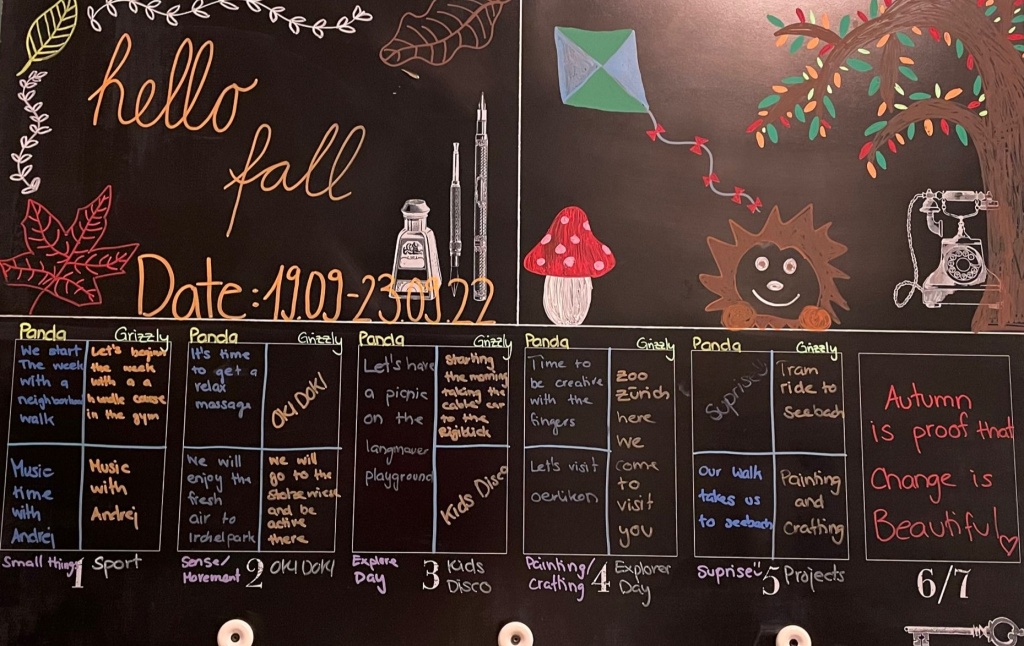 hello
fall
Date: 19.09-23.09.22
Panda
Grizzly
We start
The week
with a
neighborhood
walk
Let's begin
the week
with a a
hurdle course
in the gym
Music
time
with
Andrej
Music
with
Andrej
Small things
1
Sport
Panda
Grizzly
It's time
to get a
relax
massage
Oki Doki
We will
enjoy the
fresh
air to
Irchelpark
we will
go to the
and be
active
there
Sense/
Movement
2
Oki Doki
Panda
Grizzly
Let's have
a picnic
on the
langmauer
playground
Starting
the morning
taking the
cable car
to the
Rigiblick
Kids Disco
Explore
Day
3
Kids
Disco
Panda
Grizzly
Time to
be creative
with the
fingers
Let's visit
oerlikon
Zoo
Zürich
here
we
come
to
visit
you
Painting/
Crafting
4
Explorer
Day
Panda
Grizzly
Suprise
Tram
ride to
seebach
Our walk
takes us
to seebach
Painting
and
Crafting
Suprise
5
Projects
Autumn
is proof that
Change is
Beautiful
6/7